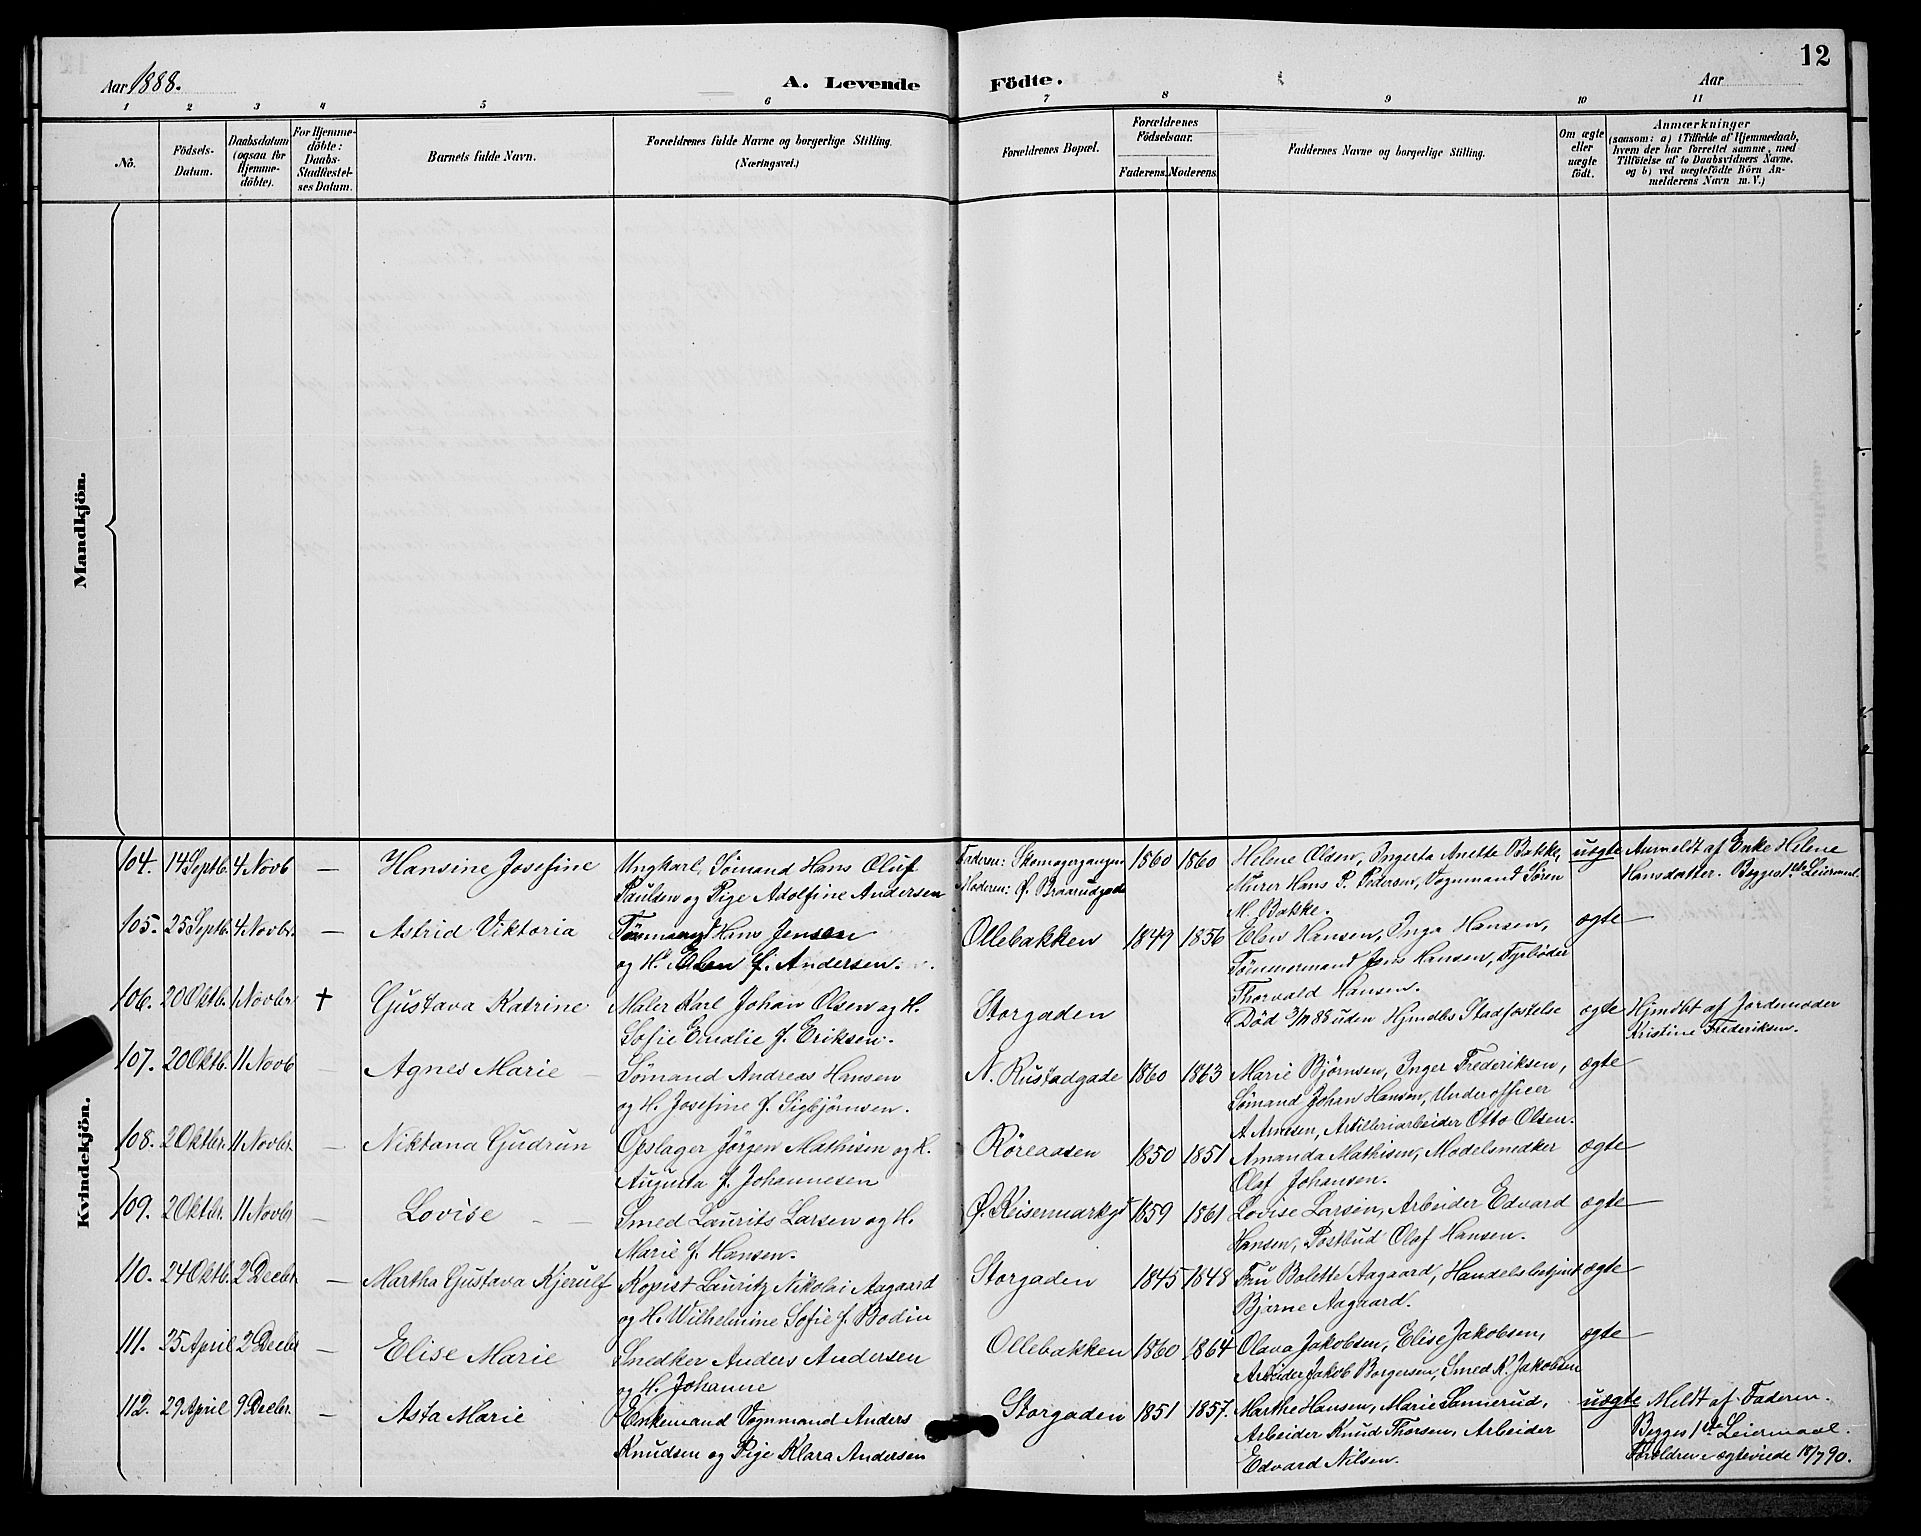 Aar 1888.
A. Levende Födte.
Aar
12
1 2 3 4 5 6 7 8 9 10 11
No.
Födsels-Datum.
Daabsdatum (ogsaa for Hjemme-döbte).
For Hjemme-döbte: Daabs-Stadfæstel-ses Datum.
Barnets fulde Navn.
Forældrenes fulde Navne og borgerlige Stilling. (Næringsvei.)
Forældrenes Bopæl.
Forældrenes Födselsaar.
Faderens. Moderens.
Faddernes Navne og borgerlige Stilling.
Om ægte eller uægte födt.
Anmærkninger
(saasom: a) i Tilfælde af Hjemmedaab,
hvem der har forrettet samme, med
Tilföielse af to Daabsvidners Navne.
og b) ved uægtefödte Börn An-
melderens Navn m. V.)
Mandkjön.
Kvindekjön.
104. 14 Septb. 4 Novb — Hansine Josefine Ungkarl, Sømand Hans Oluf Faderen: Skomagergangen 1860 1860 Helene Olsen, Ingerta Anette Bakke, uægte Anmeldt af Enke Helene
Paulsen og Pige Adolfine Andersen Moderen: Ø. Braarudgade Murer Hans P. Pedersen, Vognmand Søren Hansdatter. Begges 1ste Leiermaal.
M. Bakke.
105. 25 Septb. 4 Novbr. — Astrid Viktoria Tømmermand Hans Jensen Ollebakken 1849 1856 Elen Hansen, Inga Hansen, ægte —
og H. Elen f. Andersen. Tømmermand Jens Hansen, Fyrbøder
Thorvald Hansen.
106. 20 Oktb. 1 Novbr. † Gustava Katrine Maler Karl Johan Olsen og H. Storgaden Død 3/11 88 uden Hjmdbs Stadfæstelse ægte Hjmdbt af Jordemoder
Sofie Emalie f. Eriksen. Kristine Frederiksen.
107. 20 Oktb. 11 Novb — Agnes Marie — Sømand Andreas Hansen N. Rustadgade 1860 1863 Marie Bjørnsen, Inger Frederiksen, ægte —
og H. Josefine f. Sigbjørnsen. Sømand Johan Hansen, Underofficer
A. Arnesen, Artilleriarbeider Otto Olsen.
108. 2 Oktbr. 11 Novbr. — Niktana Gudrun Opslager Jørgen Mathisen og H. Røreaasen 1850 1851 Amanda Mathisen, Modelsmaker ægte —
Augusta f. Johannesen Olaf Johansen.
109. 2 Oktbr. 11 Novbr — Lovise — — Smed Laurits Larsen og H. Ø. Keisermarkgd 1859 1861 Lovise Larsen, Arbeider Edvard ægte —
Marie f. Hansen. Hansen, Postbud Olaf Hansen.
110. 24 Oktb. 2 Decbr — Martha Gustava Kjerulf Kopist Lauritz Nikolai Aagaard Storgaden 1845 1848 Fru Bolette Aagaard, Handelsbetjent ægte —
og H. Wilhelmine Sofie f. Bodin Bjarne Aagaard.
111. 25 April 2 Decbr — Elise Marie Snedker Anders Andersen Ollebakken 1860 1864 Olava Jakobsen, Elise Jakobsen, ægte —
og H. Johanne Arbeider Jakob Borgersen, Smed K. Jakobsen
112. 29 April 9 Decbr. — Asta Marie Enkemand Vognmand Anders Storgaden 1851 1857. Marthe Hansen, Marie Sannerud, uægte Meldt af Faderen.
Knudsen og Pige Klara Andersen Arbeider Knud Thorsen, Arbeider Begges 1ste Leiermaal.
Edvard Nilsen. Forældrene ægteviede 18/7 90.